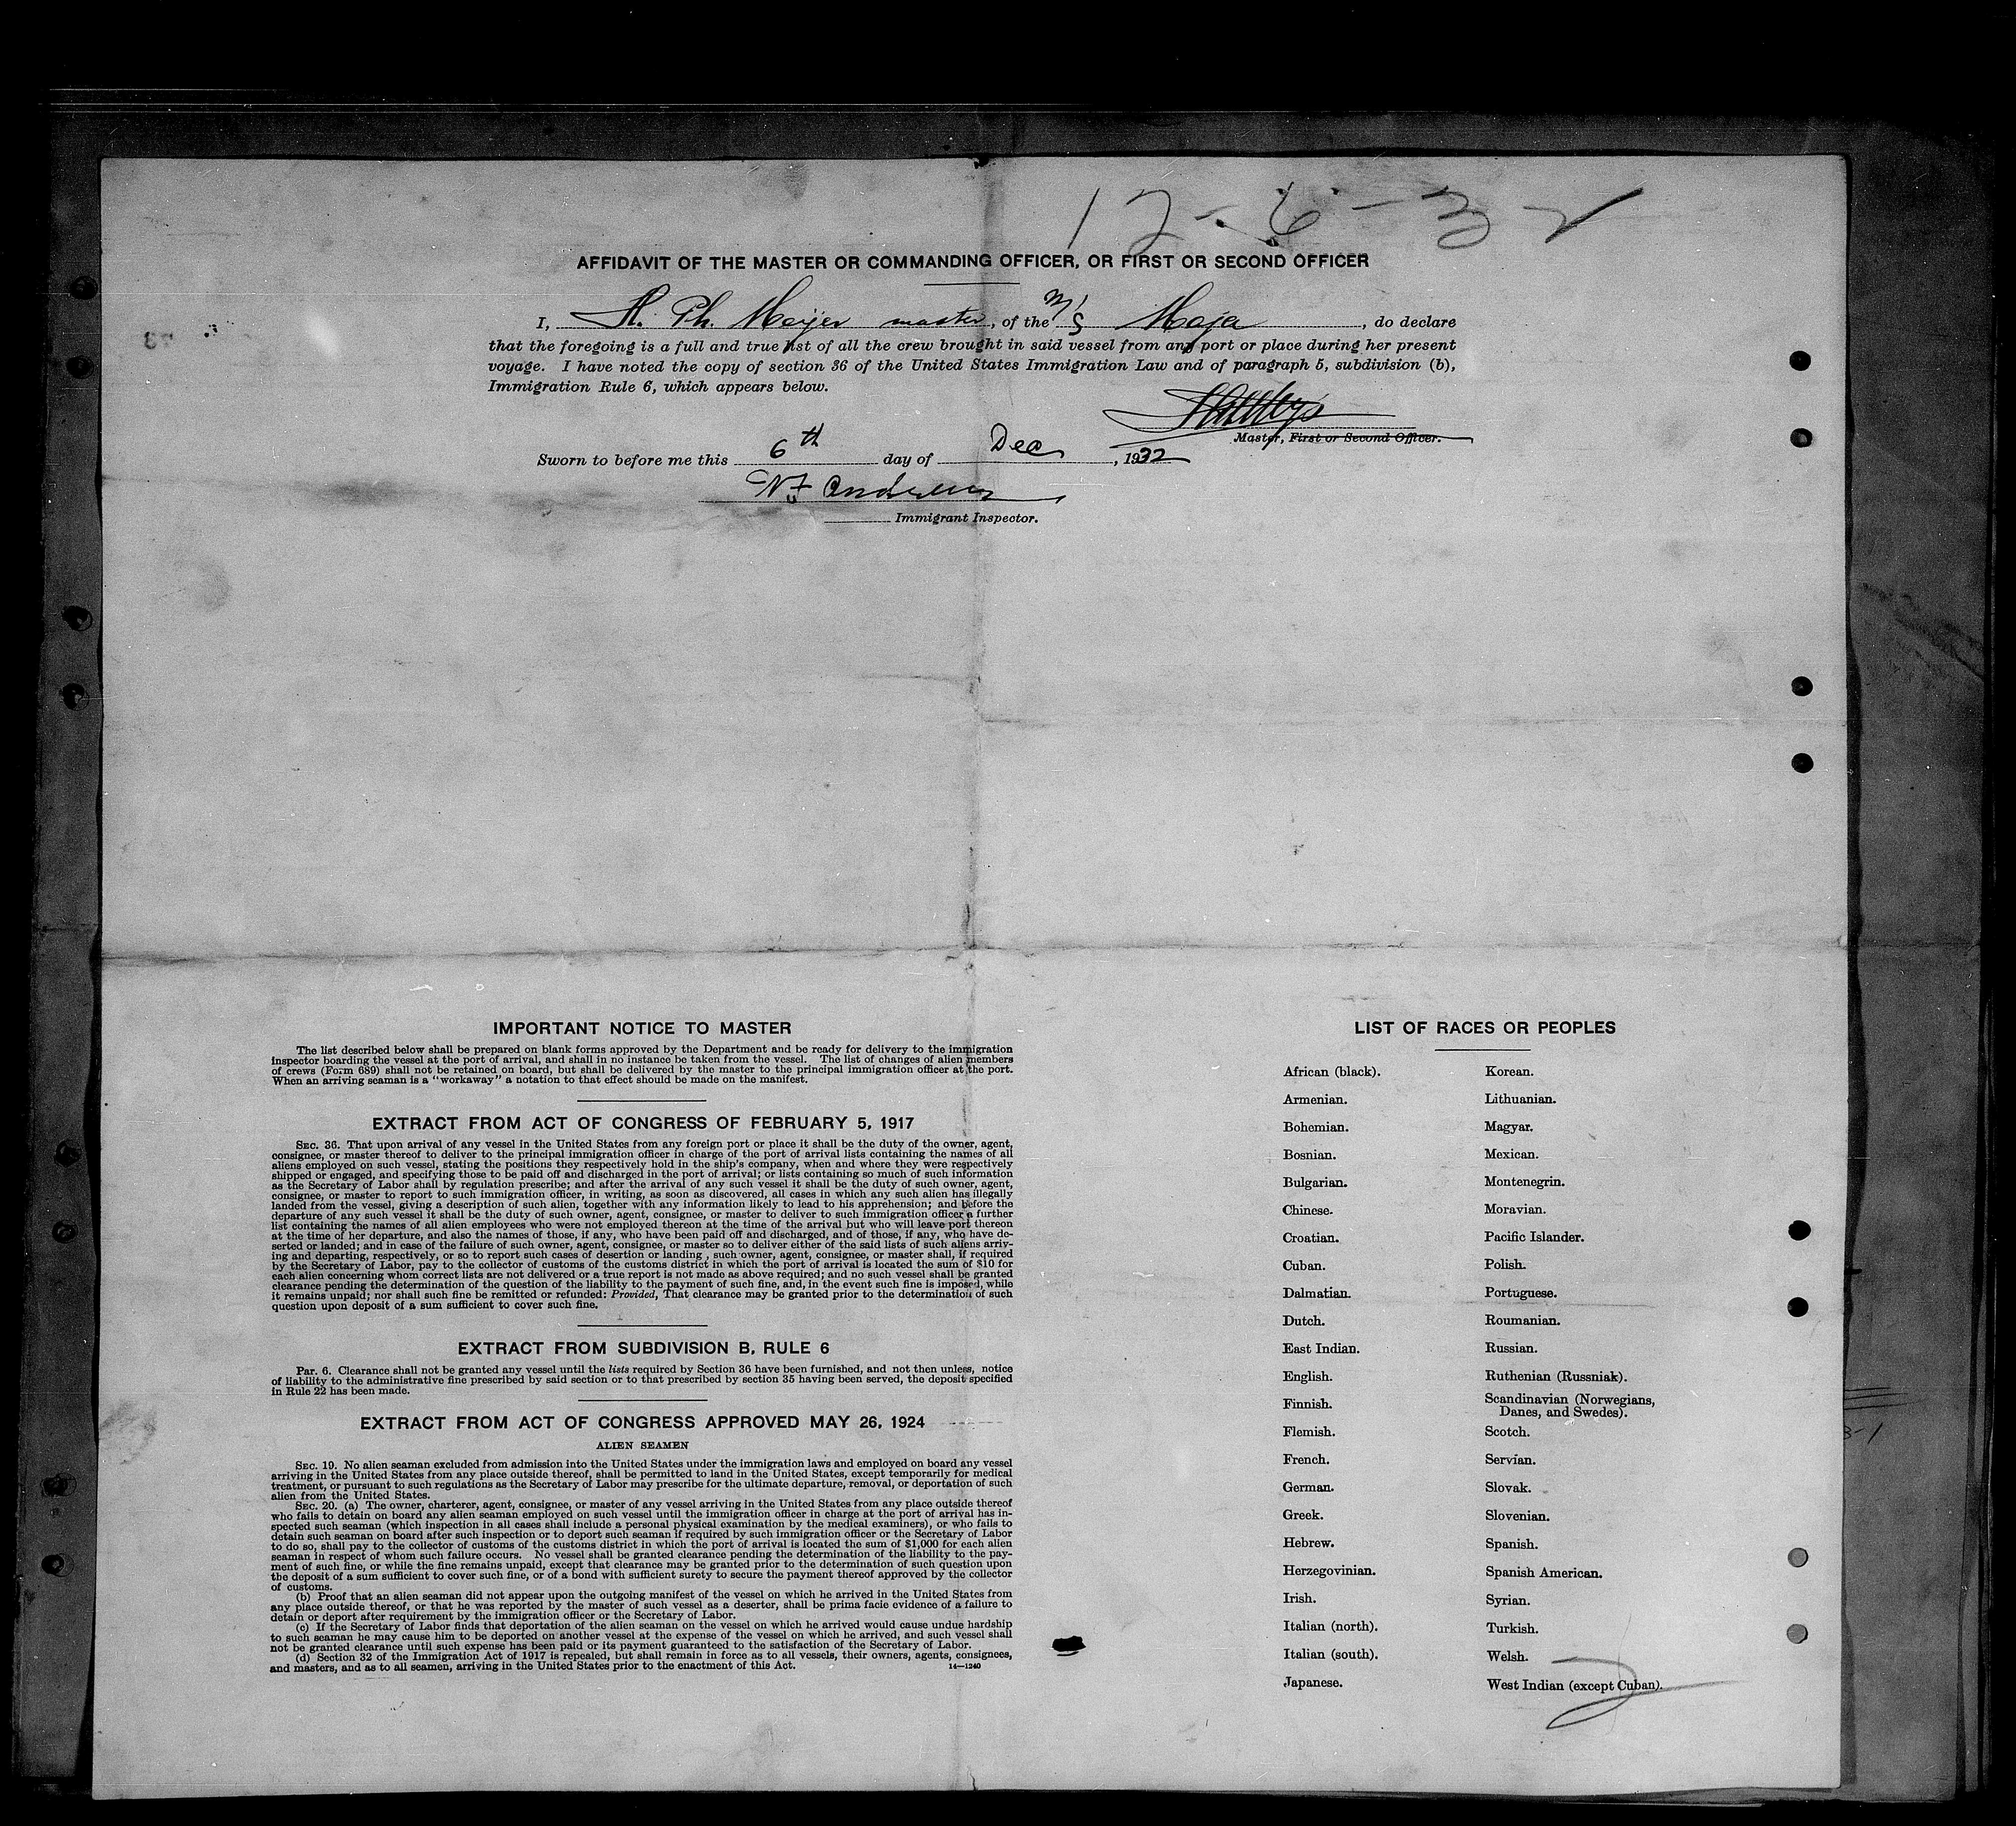 12-6-32
AFFIDAVIT OF THE MASTER OR COMMANDING OFFICER, OR FIRST OR SECOND OFFICER
I, H. Ph. Meijer master, of the M/S Maja, do declare
that the foregoing is a full and true list of all the crew brought in said vessel from any port or place during her present
voyage. I have noted the copy of section 36 of the United States Immigration Law and of paragraph 5, subdivision (b),
Immigration Rule 6, which appears below.
Master, First or Second Officer.
Sworn to before me this 6th day of Dec, 1932
Immigrant Inspector.
IMPORTANT NOTICE TO MASTER
The list described below shall be prepared on blank forms approved by the Department and be ready for delivery to the immigration
inspector boarding the vessel at the port of arrival, and shall in no instance be taken from the vessel. The list of changes of alien members
of crews (Form 689) shall not be retained on board, but shall be delivered by the master to the principal immigration officer at the port.
When an arriving seaman is a "workaway" a notation to that effect should be made on the manifest.
EXTRACT FROM ACT OF CONGRESS OF FEBRUARY 5, 1917
SEC. 36. That upon arrival of any vessel in the United States from any foreign port or place it shall be the duty of the owner, agent,
consignee, or master thereof to deliver to the principal immigration officer in charge of the port of arrival lists containing the names of all
aliens employed on such vessel, stating the positions they respectively hold in the ship's company, when and where they were respectively
shipped or engaged, and specifying those to be paid off and discharged in the port of arrival; or lists containing so much of such information
as the Secretary of Labor shall by regulation prescribe; and after the arrival of any such vessel it shall be the duty of such owner, agent,
consignee, or master to report to such immigration officer, in writing, as soon as discovered, all cases in which any such alien has illegally
landed from the vessel, giving a description of such alien, together with any information likely to lead to his apprehension; and before the
departure of any such vessel it shall be the duty of such owner, agent, consignee, or master to deliver to such immigration officer a further
list containing the names of all alien employees who were not employed thereon at the time of the arrival but who will leave port thereon
at the time of her departure, and also the names of those, if any, who have been paid off and discharged, and of those, if any, who have de-
serted or landed; and in case of the failure of such owner, agent, consignee, or master so to deliver either of the said lists of such aliens arriv-
ing and departing, respectively, or so to report such cases of desertion or landing , such owner, agent, consignee, or master shall, if required
by the Secretary of Labor, pay to the collector of customs of the customs district in which the port of arrival is located the sum of $10 for
each alien concerning whom correct lists are not delivered or a true report is not made as above required; and no such vessel shall be granted
clearance pending the determination of the question of the liability to the payment of such fine, and, in the event such fine is imposed, while
it remains unpaid; nor shall such fine be remitted or refunded: Provided, That clearance may be granted prior to the determination of such
question upon deposit of a sum sufficient to cover such fine.
EXTRACT FROM SUBDIVISION B, RULE 6
Par. 6. Clearance shall not be granted any vessel until the lists required by Section 36 have been furnished, and not then unless, notice
of liability to the administrative fine prescribed by said section or to that prescribed by section 35 having been served, the deposit specified
in Rule 22 has been made.
EXTRACT FROM ACT OF CONGRESS APPROVED MAY 26, 1924
ALIEN SEAMEN
SEC. 19. No alien seaman excluded from admission into the United States under the immigration laws and employed on board any vessel
arriving in the United States from any place outside thereof, shall be permitted to land in the United States, except temporarily for medical
treatment, or pursuant to such regulations as the Secretary of Labor may prescribe for the ultimate departure, removal, or deportation of such
alien from the United States.
SEC. 20. (a) The owner, charterer, agent, consignee, or master of any vessel arriving in the United States from any place outside thereof
who fails to detain on board any alien seaman employed on such vessel until the immigration officer in charge at the port of arrival has in-
spected such seaman (which inspection in all cases shall include a personal physical examination by the medical examiners), or who fails to
detain such seaman on board after such inspection or to deport such seaman if required by such immigration officer or the Secretary of Labor
to do so, shall pay to the collector of customs of the customs district in which the port of arrival is located the sum of $1,000 for each alien
seaman in respect of whom such failure occurs. No vessel shall be granted clearance pending the determination of the liability to the pay-
ment of such fine, or while the fine remains unpaid, except that clearance may be granted prior to the determination of such question upon
the deposit of a sum sufficient to cover such fine, or of a bond with sufficient surety to secure the payment thereof approved by the collector
of customs.
(b) Proof that an alien seaman did not appear upon the outgoing manifest of the vessel on which he arrived in the United States from
any place outside thereof, or that he was reported by the master of such vessel as a deserter, shall be prima facie evidence of a failure to
detain or deport after requirement by the immigration officer or the Secretary of Labor.
(c) If the Secretary of Labor finds that deportation of the alien seaman on the vessel on which he arrived would cause undue hardship
to such seaman he may cause him to be deported on another vessel at the expense of the vessel on which he arrived, and such vessel shall
not be granted clearance until such expense has been paid or its payment guaranteed to the satisfaction of the Secretary of Labor.
(d) Section 32 of the Immigration Act of 1917 is repealed, but shall remain in force as to all vessels, their owners, agents, consignees,
and masters, and as to all seamen, arriving in the United States prior to the enactment of this Act.
14—1240
LIST OF RACES OR PEOPLES
African (black).
Armenian.
Bohemian.
Bosnian.
Bulgarian.
Chinese.
Croatian.
Cuban.
Dalmatian.
Dutch.
East Indian.
English.
Finnish.
Flemish.
French.
German.
Greek.
Hebrew.
Herzegovinian.
Irish.
Italian (north).
Italian (south).
Japanese.
Korean.
Lithuanian.
Magyar.
Mexican.
Montenegrin.
Moravian.
Pacific Islander.
Polish.
Portuguese.
Roumanian.
Russian.
Ruthenian (Russniak).
Scandinavian (Norwegians,
Danes, and Swedes).
Scotch.
Servian.
Slovak.
Slovenian.
Spanish.
Spanish American.
Syrian.
Turkish.
Welsh.
West Indian (except Cuban).